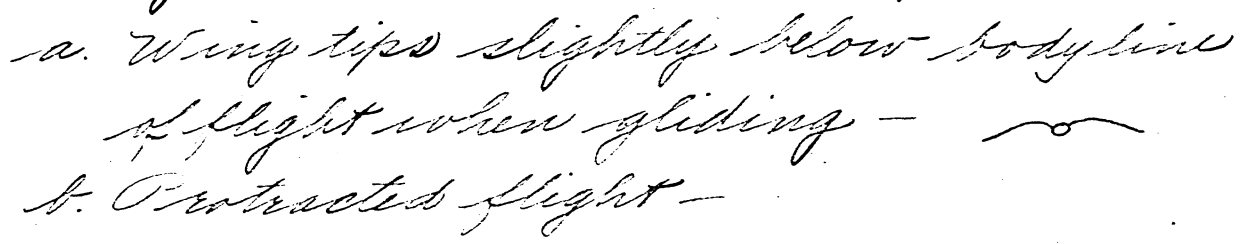 a. Wing tips slightly below body line
of flight when gliding –
b. Protracted flight –